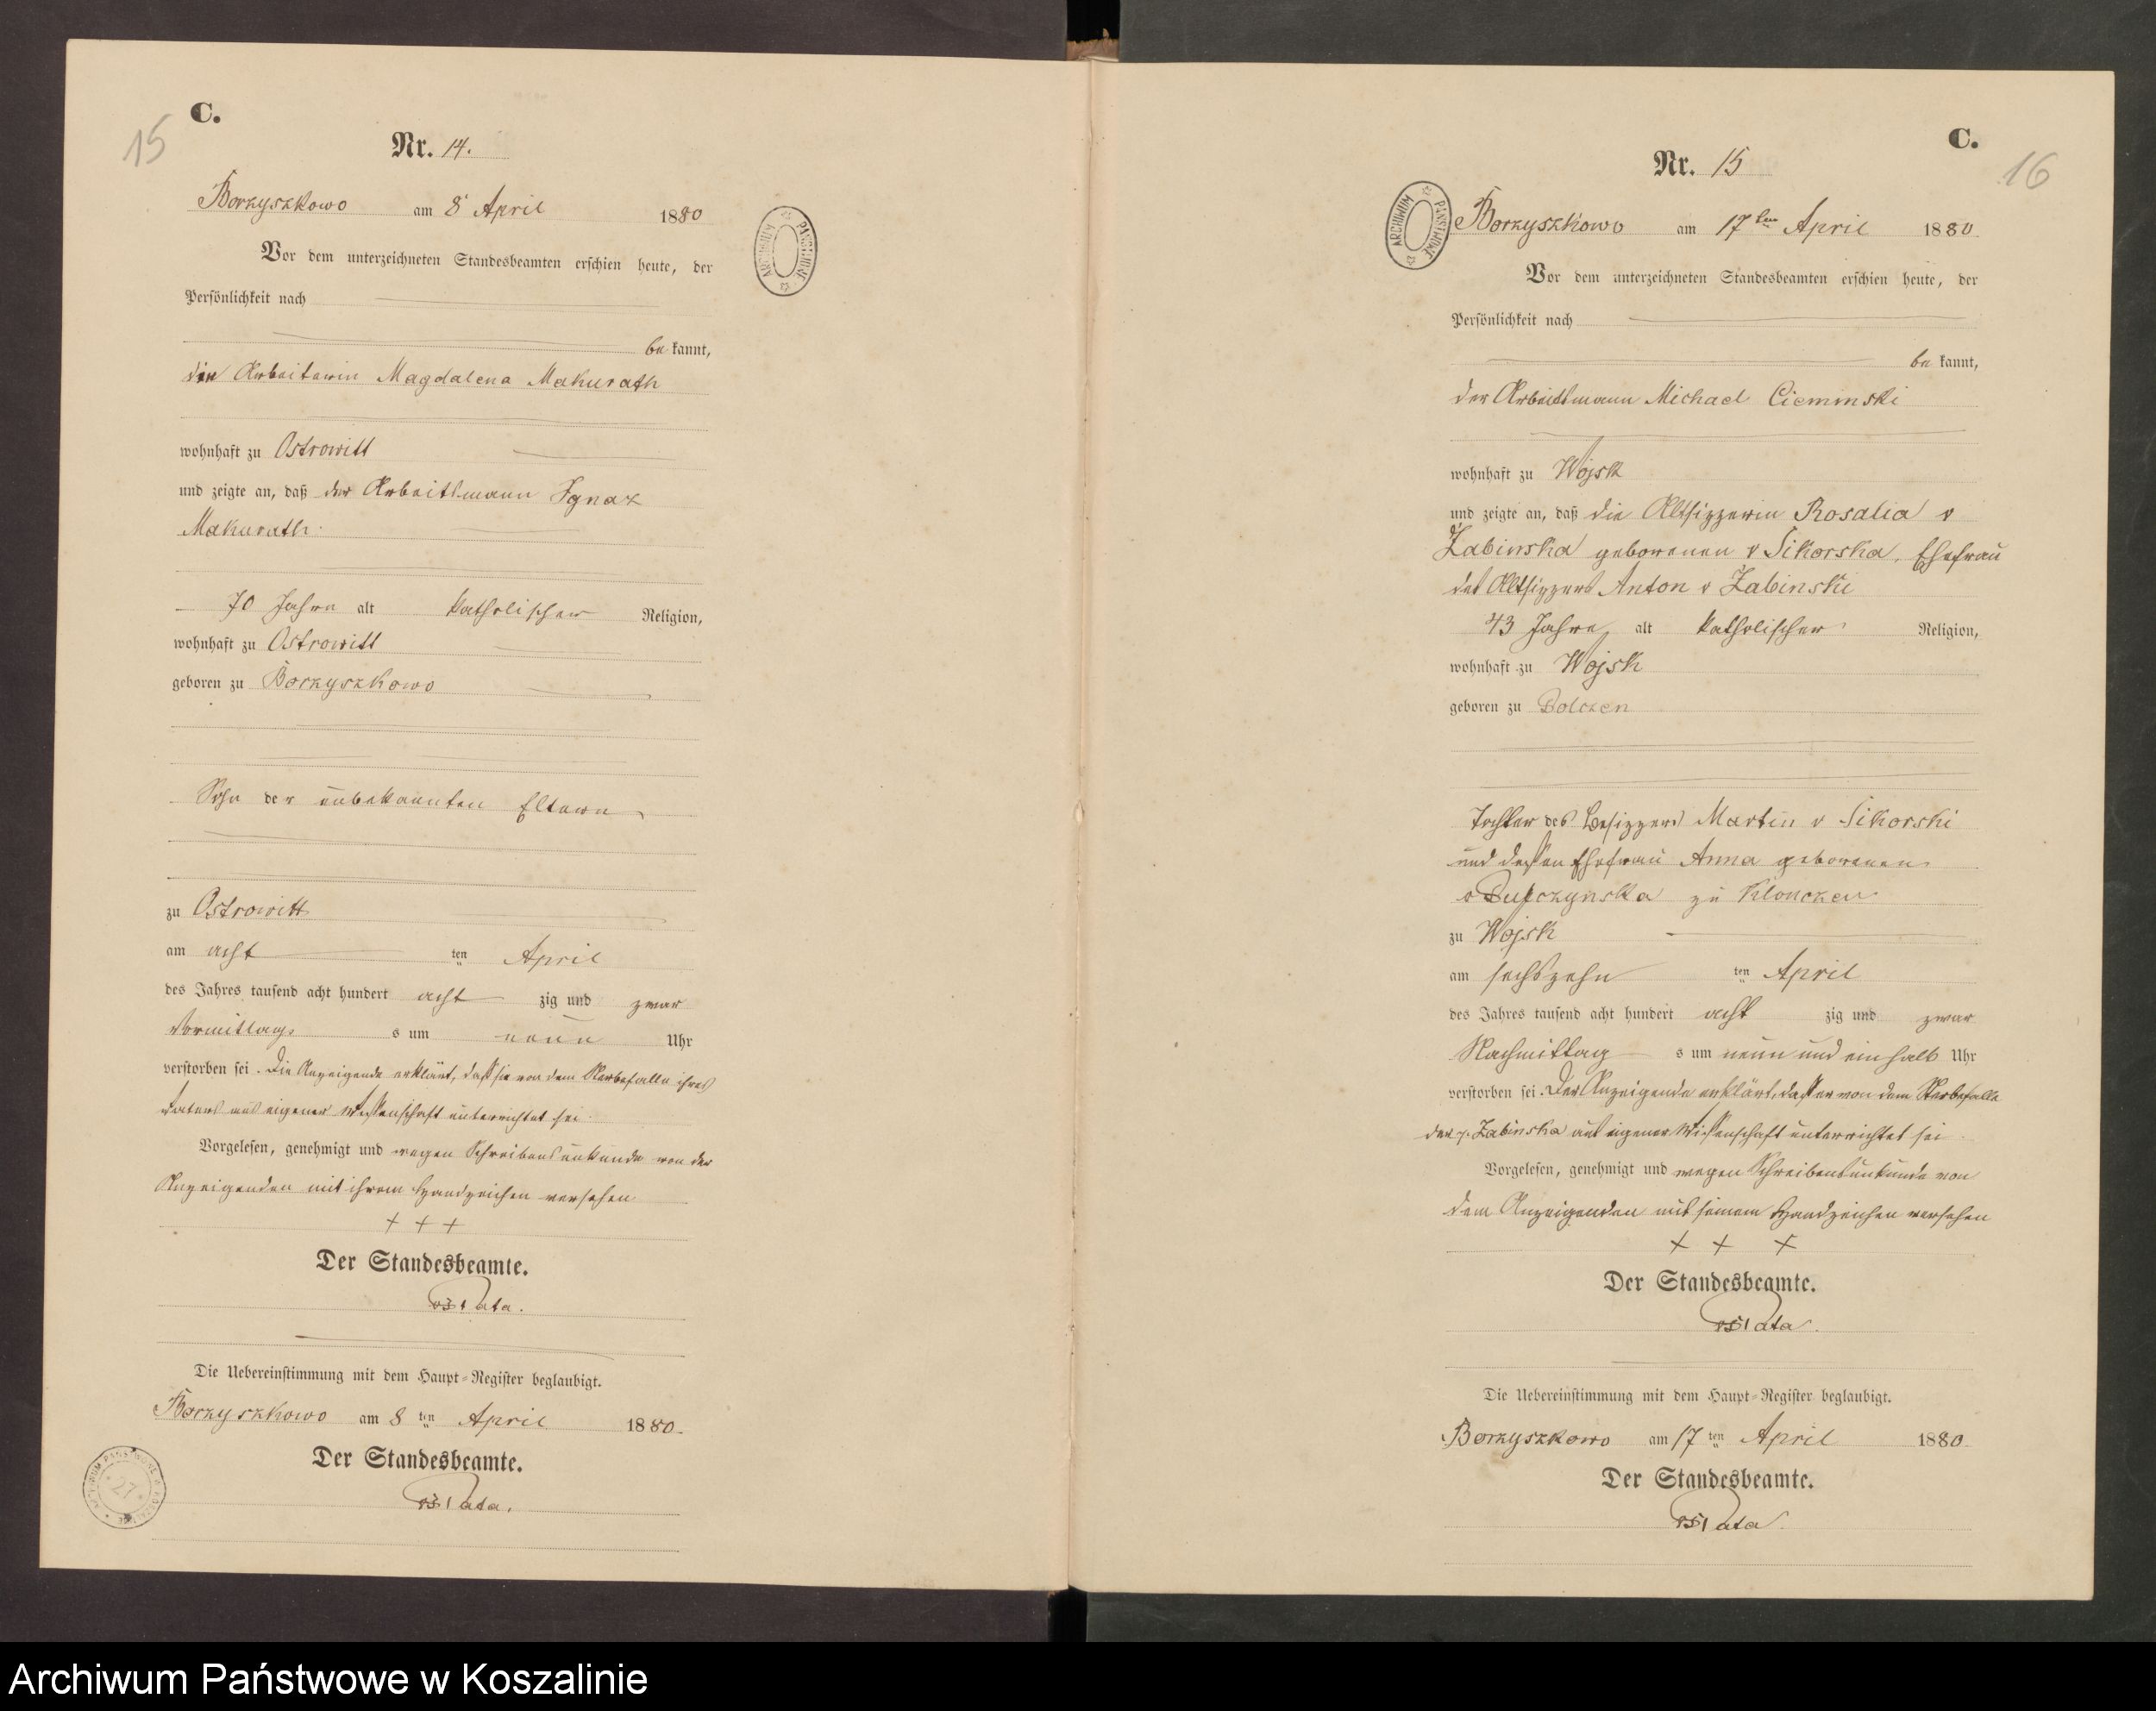 15
C.
Nr. 14.
Borzyszkowo am 8 April 1880
Vor dem unterzeichneten Standesbeamten erschien heute, der
Persönlichkeit nach
be kannt,
die Arbeiterin Magdalena Makurath
wohnhaft zu Ostrowitt
und zeigte an, daß der Arbeitsmann Ignaz
Makurath
70 Jahre alt katholischer Religion,
wohnhaft zu Ostrowitt
geboren zu Borzyszkowo
Sohn der unbekannten Eltern
zu Ostrowitt
am acht ten April
des Jahres tausend acht hundert acht zig und zwar
Vormittag s um neun Uhr
verstorben sei. Die Anzeigende erklärt, daß sie von dem Sterbefalle ihres
Vaters aus eigener Wissenschaft unterrichtet sei.
Vorgelesen, genehmigt und wegen Schreibensunkunde von der
Anzeigenden mit ihrem Handzeichen versehen
+ + +
Der Standesbeamte.
Pata.
Die Uebereinstimmung mit dem Haupt-Register beglaubigt.
Borzyszkowo am 8 ten April 1880.
Der Standesbeamte.
Pata.
ARCHIWUM PAŃSTWOWE
27
C.
16
Nr. 15
Borzyszkowo am 17ten April 1880
ARCHIWUM PAŃSTWOWE
Vor dem unterzeichneten Standesbeamten erschien heute, der
Persönlichkeit nach
be kannt,
der Arbeitsmann Michael Cieminski
wohnhaft zu Wojsk
und zeigte an, daß die Altsizzerin Rosalia v
Żabinska geborenen v Sikorska, Ehefrau
des Altsizzers Anton v Żabinski
43 Jahre alt katholischer Religion,
wohnhaft zu Wojsk
geboren zu Bolczen
Tochter des Besizzers Martin v Sikorski
und dessen Ehefrau Anna geborenen
v zu Klonczen
zu Wojsk
am sechszehn ten April
des Jahres tausend acht hundert acht zig und zwar
Nachmittag s um neun und einhalb Uhr
verstorben sei. Der Anzeigende erklärt, daß er von dem Sterbefalle
der p. Żabinska aus eigener Wissenschaft unterrichtet sei
Vorgelesen, genehmigt und wegen Schreibensunkunde von
dem Anzeigenden mit seinem Handzeichen versehen
+ + +
Der Standesbeamte.
Pata.
Die Uebereinstimmung mit dem Haupt-Register beglaubigt.
Borzyszkowo am 17 ten April 1880.
Der Standesbeamte.
Pata.
Archiwum Państwowe w Koszalinie